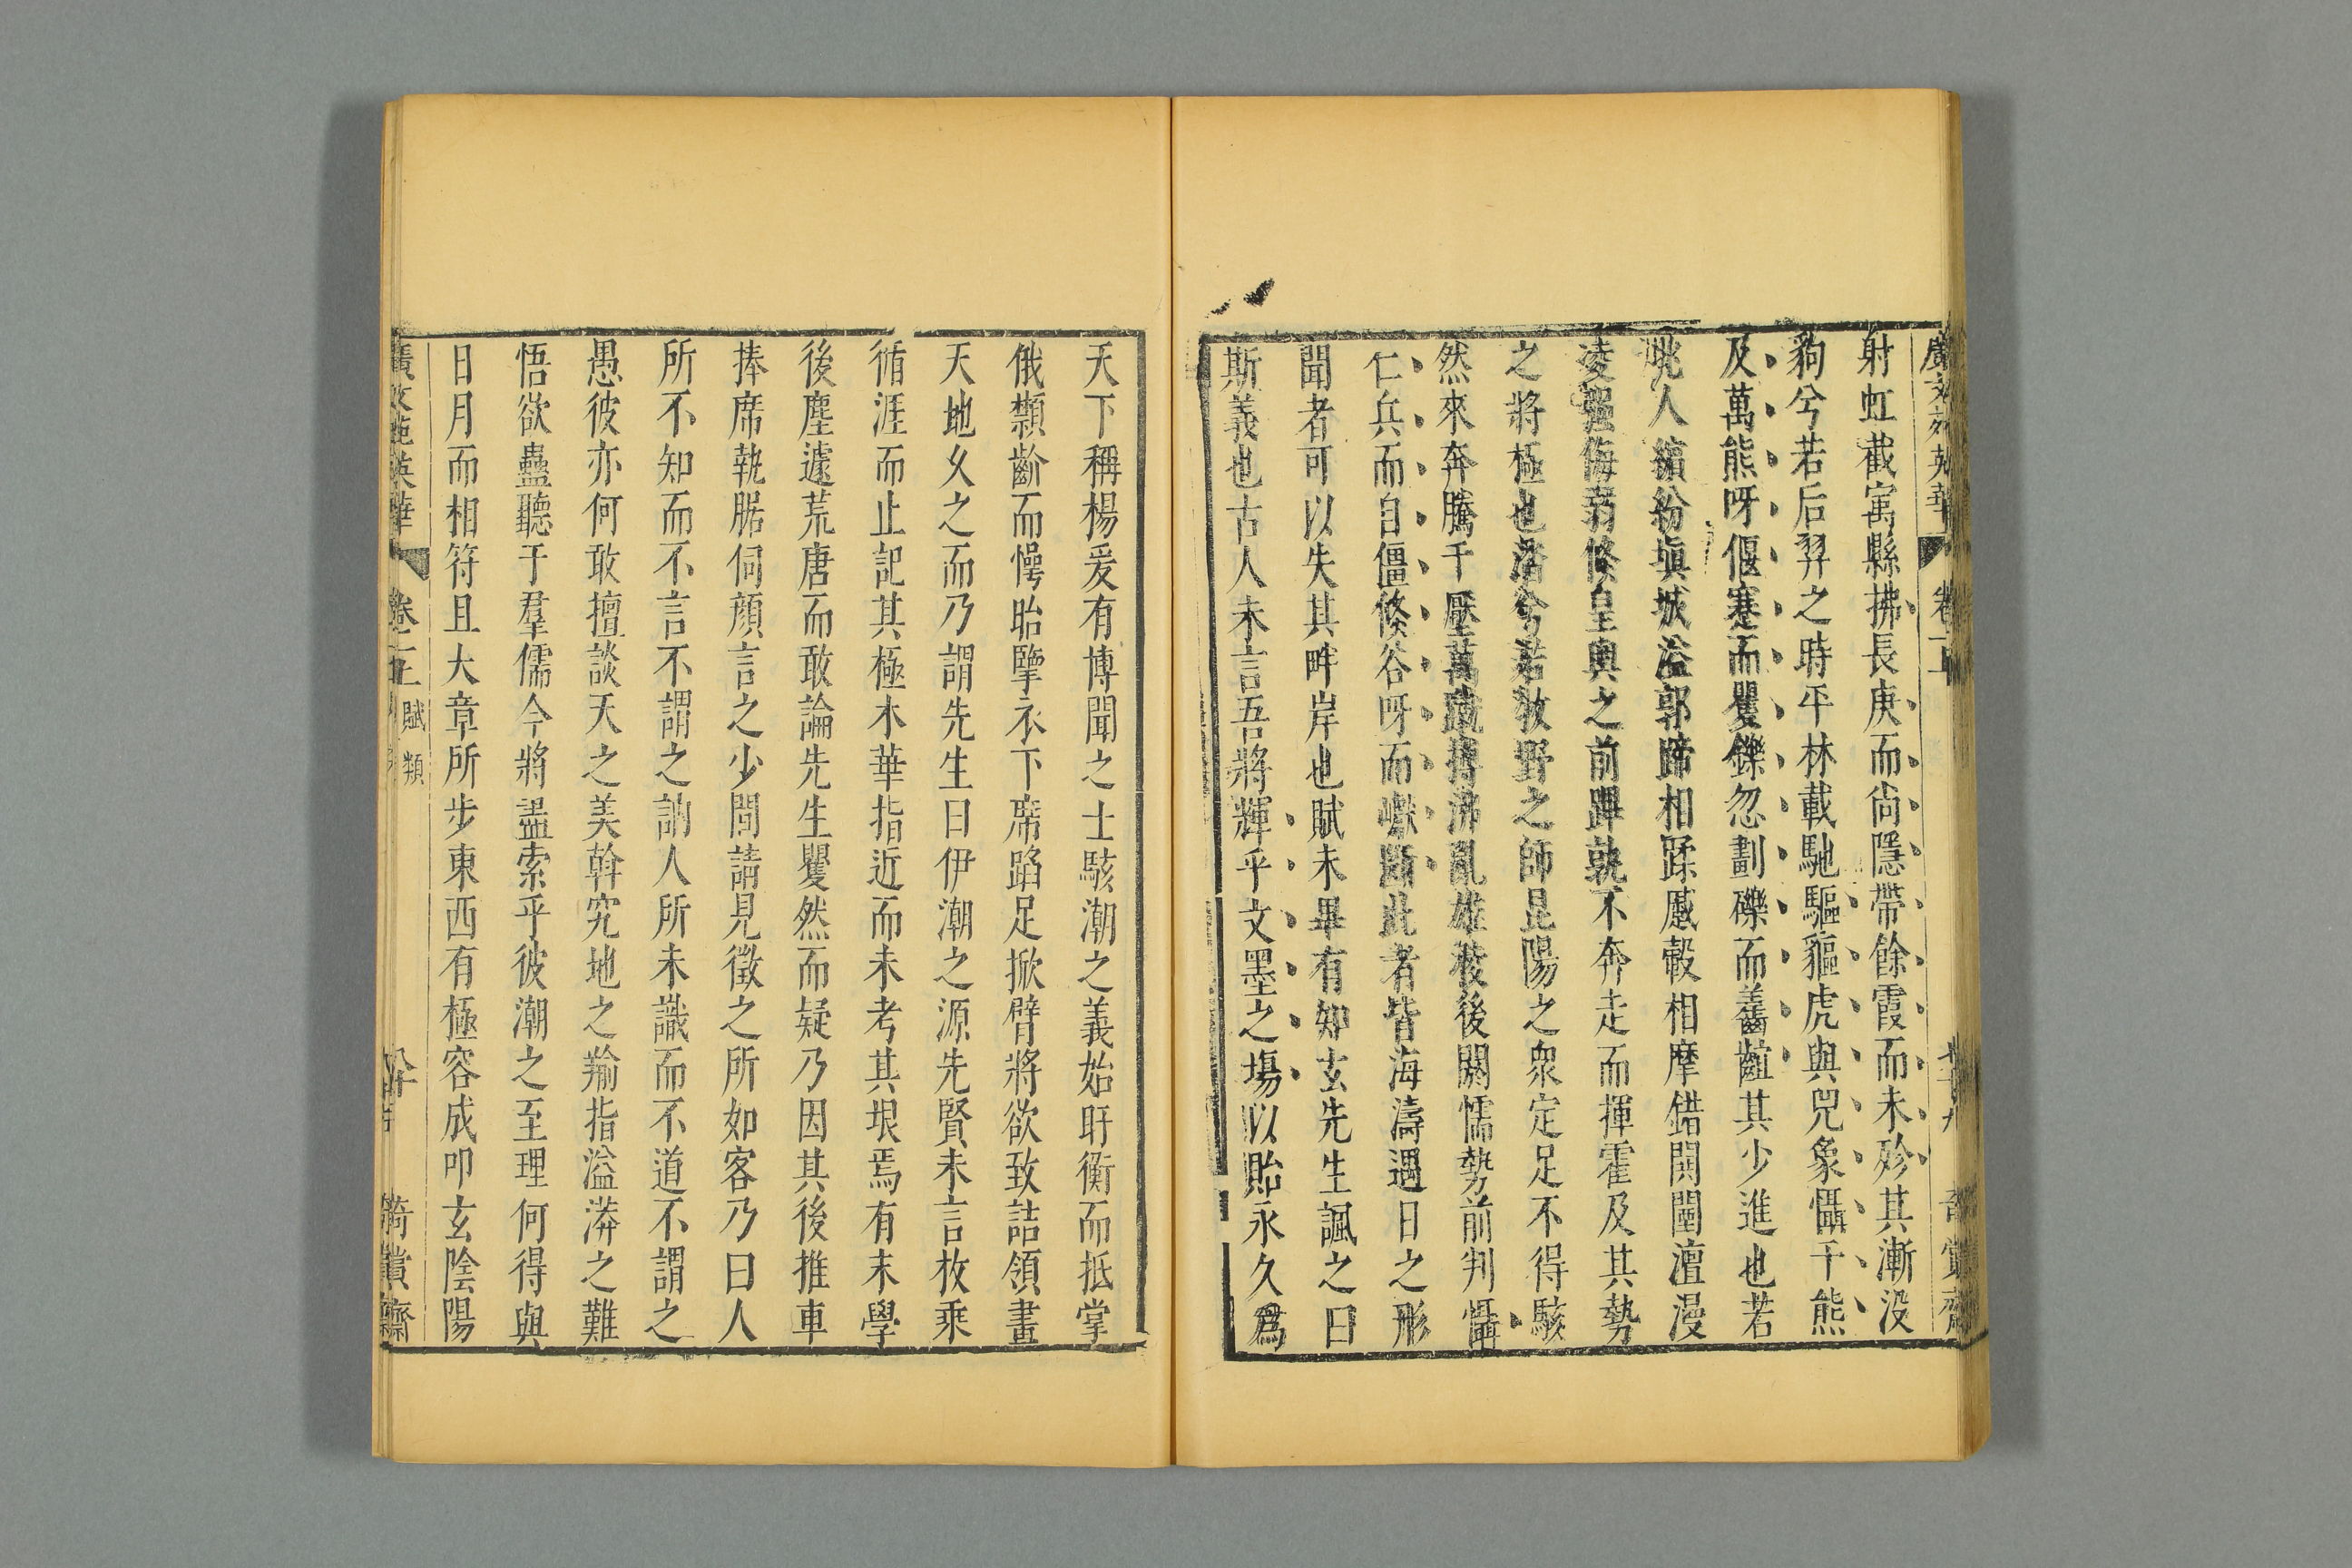 廣文苑英華 卷二上
射虹截寓縣拂長庚而尚隱帶餘霞而未殄其漸没
豿兮若后羿之時平林載馳驅貙虎與兕象懾千熊
及萬熊呀偃蹇而矍鑠忽劃礫而齹齇其少進也若
兆人繽紛塡城溢郭蹄相蹂蹙轂相摩錯閧闐澶漫
凌强侮弱倏皇輿之前蹕孰不奔走而揮霍及其勢
之將極也渀兮若牧野之師昆陽之衆定足不得駭
然來奔騰千壓萬蹴搏沸亂雄稜後闕懦勢前判懾
仁兵而自僵倐谷呀而巘斷此者皆海濤遇日之形
聞者可以失其畔岸也賦未畢有知玄先生諷之曰
斯義也古人未言吾將輝乎文墨之塲以貽永久爲
天下稱楊爰有博聞之士駭潮之義始盱衡而抵掌
俄顙齡而愕眙擥衣下席蹈足掀臂將欲致詰領畫
天地久之而乃謂先生曰伊潮之源先賢未言枚乘
循涯而止記其極木華指近而未考其垠焉有末學
後塵遽荒唐而敢論先生矍然而疑乃因其後推車
捧席執腒伺顔言之少間請見徵之所如客乃曰人
所不知而不言不謂之訥人所未識而不道不謂之
愚彼亦何敢擅談天之美斡究地之羭指溢漭之難
悟欲蠱聽于羣儒今將盡索乎彼潮之至理何得與
日月而相符且大章所步東西有極容成叩玄陰陽
廣文苑英華 卷二上 賦類 八十 奇賞齋